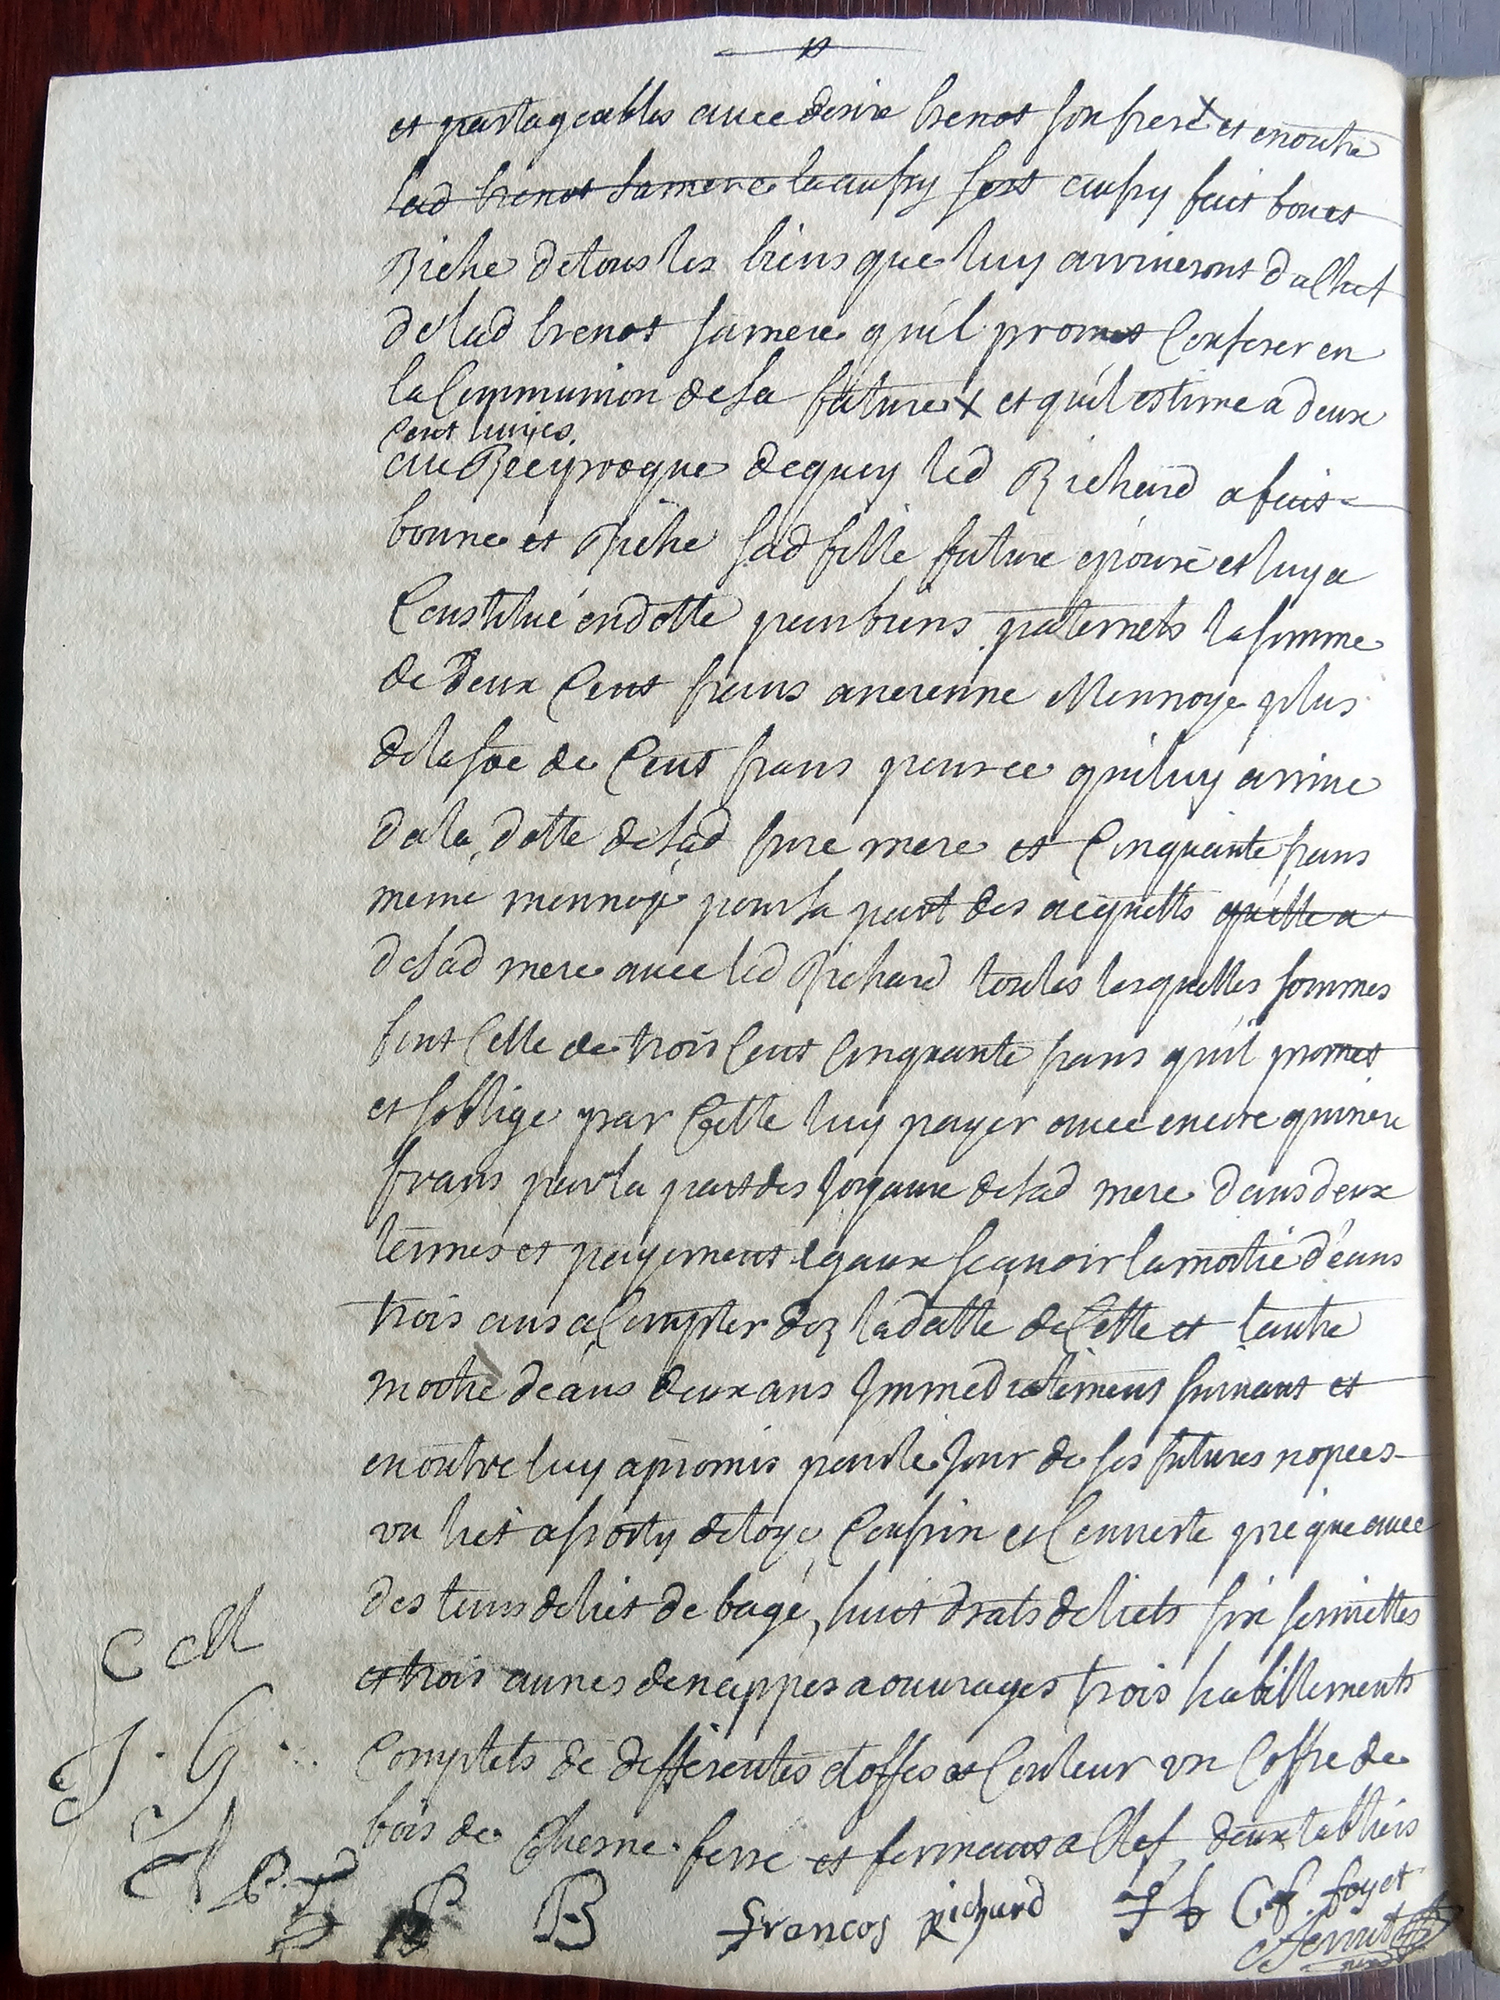 et partageables avec desire brenot son frere X et en outre
lad brenot sa mere la aussy sest aussy fait bon et
Riche de tous les biens que luy arriveront du Chef
de lad brenot sa mere qu'il promet Conferer en
la Communion de sa future X et qu'il estime a deux
Cent livres.
au Reciproque de quoy led Richard a fait
bonne et Riche sad fille future epouse et luy a
Constitué en dotte pour biens paternels la somme
de deux Cent frans ancienne Monnoye plus
de la soe de Cent frans pour ce qui luy arrive
de la dotte de sad fure mere et Cinquante frans
meme monnoye pour sa part des acquetts qu'elle a
de sad mere avec led Richard toutes lesquelles sommes
font Celle de trois Cent Cinquante frans qu'il promet
et soblige par Cette luy payer avec encore quinze
frans pour la part des Joyaux de sad mere dans deux
termes et payement egaux scavoir la moitié d'eans
trois ans a Compter dez la datte de Cette et l'autre
moitié d'eans deux ans Immediatement suivant et
en outre luy a promis pour le Jour de ses futures nopces
un lict assorty de toye Coussin et Couverte avec
des tours de lict de bage, huit drats de licts six serviettes
et trois aunes de nappes a ouvrages trois habillements
Complets de differentes etoffes et Couleur un Coffre de
bois de Chesne ferré et fermant a Clef, deux tabliers
C CM
J. G.
P. B
francos richard
J b
C. f. foyet